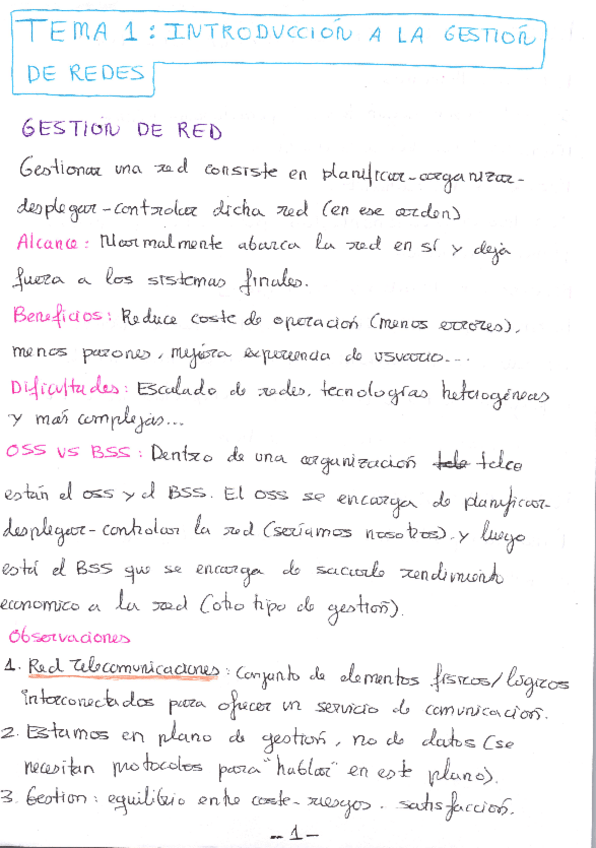 TEMA 1: INTRODUCCIÓN A LA GESTIÓN
DE REDES
GESTIÓN DE RED
Gestionar una red consiste en planificar-organizar-
desplegar-controlar dicha red (en ese orden)
Alcance: Normalmente abarca la red en sí y deja
fuera a los sistemas finales.
Beneficios: Reduce coste de operación (menos errores),
menos parones, mejora experiencia de usuario...
Dificultades: Escalado de redes, tecnologías heterogéneas
y más complejas...
OSS VS BSS: Dentro de una organización tele telco
están el OSS y el BSS. El OSS se encarga de planificar-
desplegar-controlar la red (seríamos nosotros), y luego
está el BSS que se encarga de sacarle rendimiento
economico a la red (otro tipo de gestión).
Observaciones
1. Red Telecomunicaciones: Conjunto de elementos físicos/lógicos
interconectados para ofrecer un servicio de comunicación.
2. Estamos en plano de gestión, no de datos (se
necesitan protocolos para "hablar" en este plano).
3. Gestion: equilibrio entre coste-riesgos. satisfacción.
-- 1 -